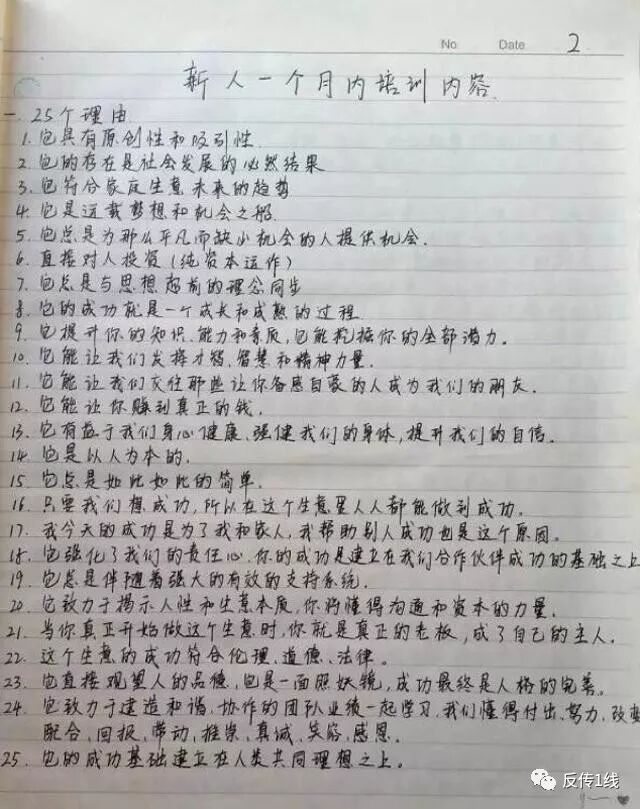 No    Date    2
新人一个月内培训内容
一 25个理由
1. 它具有原创性和吸引性
2. 它的存在是社会发展的必然结果
3. 它符合家庭生意未来的趋势
4. 它是运载梦想和机会之船
5. 它总是为那么平凡而缺少机会的人提供机会.
6. 直接对人投资(纯资本运作)
7. 它总是与思想超前的理念同生
8. 它的成功就是一个成长和成熟的过程
9. 它提升你的知识、能力和素质,它能挖掘你的全部潜力。
10. 它能让我们发挥才智、智慧和精神力量.
11. 它能让我们交往那些让你备感自豪的人成为我们的朋友.
12. 它能让你赚到真正的钱.
13. 它有益于我们身心健康、强健我们的身体,提升我们的自信。
14. 它是以人为本的.
15. 它总是如此如此的简单.
16. 只要我们想成功,所以在这个生意里人人都能做到成功.
17. 我今天的成功是为了我和家人,我帮助别人成功也是这个原因。
18. 它强化了我们的责任心.你的成功是建立在我们合作伙伴成功的基础之上
19. 它总是伴随着强大的有效的支持系统.
20. 它致力于揭示人性和生意本质,你将懂得沟通和资本的力量.
21. 当你真正开始做这个生意时,你就是真正的老板,成了自己的主人.
22. 这个生意的成功符合伦理、道德、法律。
23. 它直接观望人的品德,它是一面照妖镜,成功最终是人格的完善。
24. 它致力于建造和谐、协作的团队业绩一起学习,我们懂得付出、努力,改变
配合、回报、带动、推崇、真诚、笑容、感恩.
25. 它的成功基础建立在人类共同理想之上.
反传1线